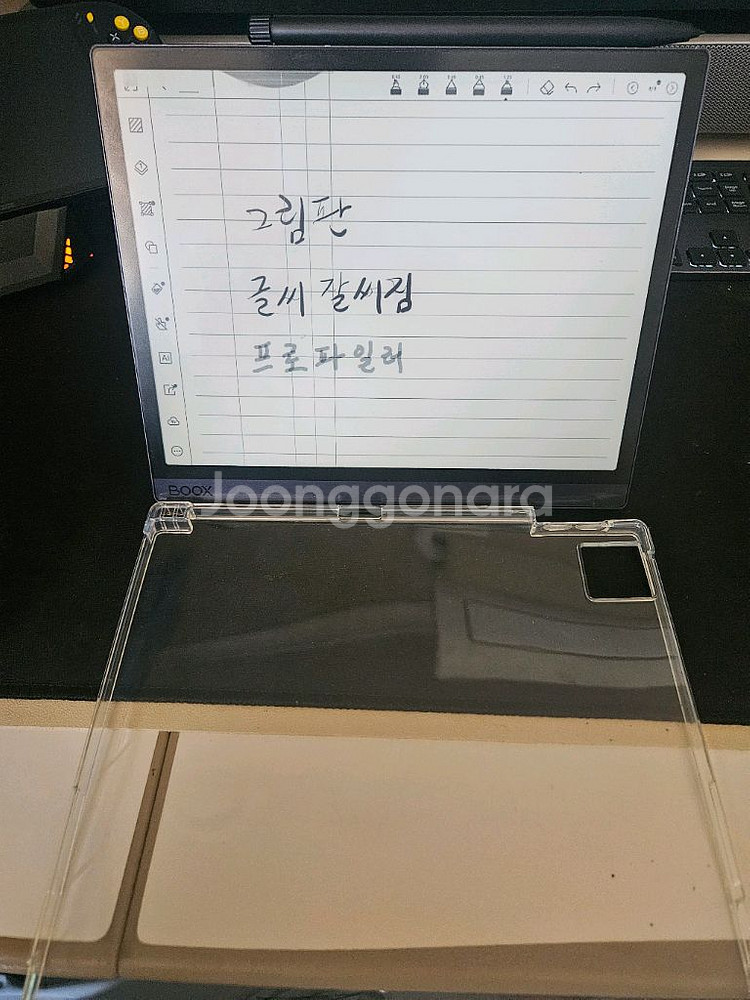 그림판
글씨 잘써짐
프로파일러
AI
BOOX
Joonggonara